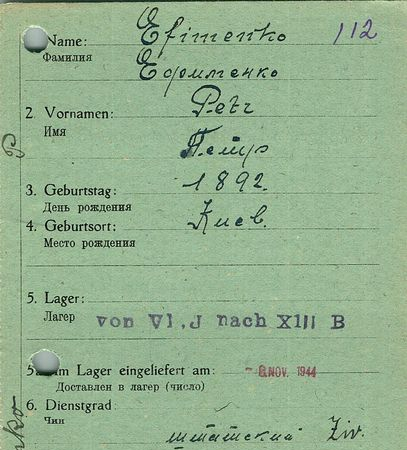 Name: Efimenko 112
Фамилия Ефименко
2. Vornamen: Petr
Имя
Петр
3. Geburtstag: 1892.
День рождения
4. Geburtsort: Киев.
Место рождения
5. Lager:
Лагер von VI.J nach XIII B
5a. Im Lager eingeliefert am: NOV. 1944
Доставлен в лагер (число)
6. Dienstgrad:
Чин
штатский Ziv.